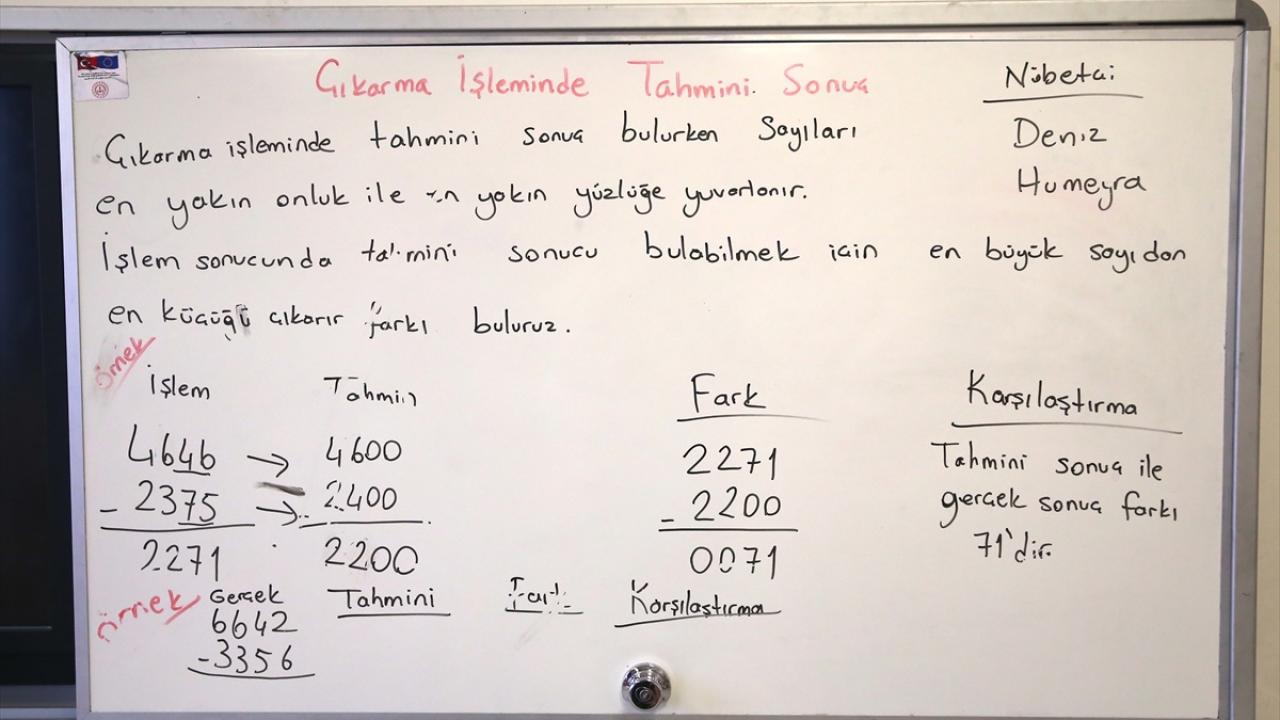 Çıkarma İşleminde Tahmini Sonuç
Nöbetçi
Deniz
Humeyra
Çıkarma işleminde tahmini sonuç bulurken Sayıları
en yakın onluk ile en yakın yüzlüğe yuvarlanır.
İşlem sonucunda tahmini sonucu bulabilmek için en büyük sayıdan
en küçüğü çıkarır farkı buluruz.
örnek
İşlem Tahmin Fark Karşılaştırma
4646 → 4600 2271 Tahmini sonuç ile
- 2375 → - 2400 - 2200 gerçek sonuç farkı
2271 2200 0071 71'dir.
örnek Gerçek Tahmini Fark Karşılaştırma
6642
-3356